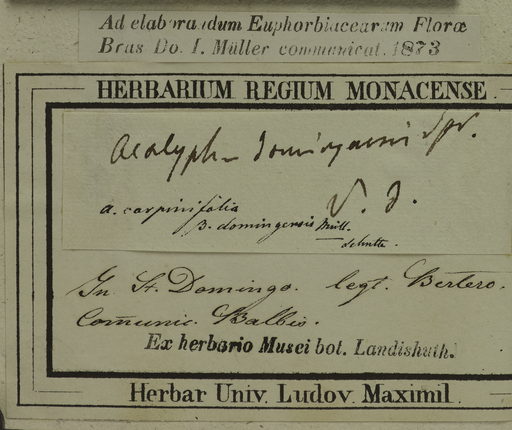 Ad elaborandum Euphorbiacearum Floræ
Bras Do. I. Müller communicat. 1873
HERBARIUM REGIUM MONACENSE
Acalypha domingensis Spr.
V. d.
a. carpinifolia
β. domingensis Müll.
In St. Domingo. legt. Bertero.
Comunic. Balbis.
Ex herbario Musei bot. Landishuth.
Herbar Univ. Ludov. Maximil.